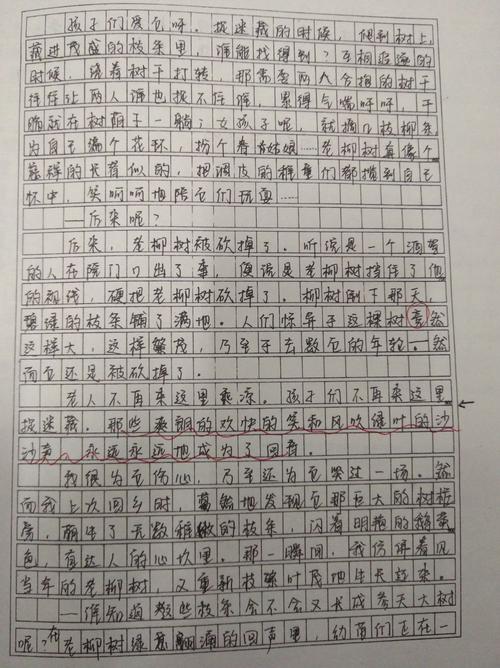 孩子们度包呀。捉迷藏的时候，爬到树上，
藏进茂盛的枝条里，谁能找得到？互相追逐的
时候，绕着树干打转，那需要两人合抱的树干
往往让两人谁也捉不住谁，累得气喘呼呼，干
脆就在树荫下一躺；女孩子呢，就摘几枝柳条，
为自己编个花环，扮个春姑娘……老柳树真像个
慈祥的长者似的，把调皮的稚童们都揽到自己
怀中，笑呵呵地陪它们玩耍……
——后来呢？
后来，老柳树被砍掉了。听说是一个酒驾
的人在院门口出了事，便说是老柳树挡住了他
的视线，硬把老柳树砍掉了。柳树倒下那天，
碧绿的枝条铺了满地。人们惊异于这棵树竟然
这样大，这样繁茂，乃至于去数它的年轮。然
而它还是被砍掉了。
老人不再来这里乘凉。孩子们不再来这里
捉迷藏。那些爽朗的欢快的笑和风吹绿叶的沙
沙声，永远永远地成为了回音。
我很为它伤心，乃至还为它哭过一场。然
而我上次回乡时，蓦然地发现它那巨大的树桩
旁，萌生了无数稚嫩的枝条，闪着明艳的鹅黄
色，直达人的心坎里。那一瞬间，我仿佛看见
当年的老柳树，又重新枝繁叶茂地生长起来。
——谁知道这些枝条会不会又长成参天大树
呢？在老柳树绿意翩涌的回声里，幼苗们正在一